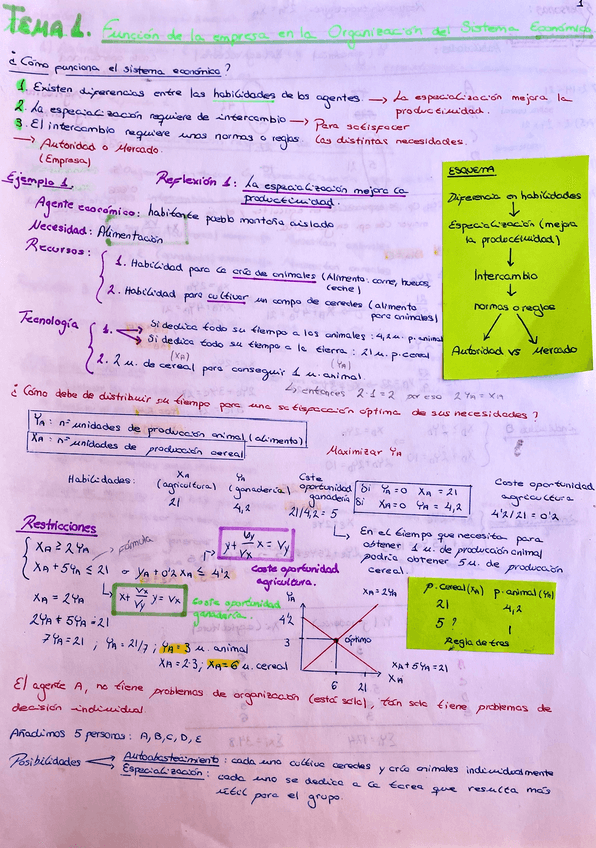 1
TEMA 1. Función de la empresa en la Organización del Sistema Económico
¿Cómo funciona el sistema económico?
1. Existen diferencias entre las habilidades de los agentes. → La especialización mejora la productividad.
2. La especialización requiere de intercambio → Para satisfacer las distintas necesidades.
3. El intercambio requiere unas normas o reglas
→ Autoridad o Mercado.
(Empresa)
ESQUEMA
Diferencia en habilidades
↓
Especialización (mejora
la productividad)
↓
Intercambio
↓
normas o reglas
Autoridad vs Mercado
Ejemplo 1.
Reflexión 1: La especialización mejora la
productividad.
Agente económico: habitante pueblo montaña aislado
Necesidad: Alimentación
Recursos:
1. Habilidad para la cría de animales (Alimento: carne, huevos,
leche)
2. Habilidad para cultivar un campo de cereales (alimento
para animales)
Tecnología
1. → Si dedica todo su tiempo a los animales: 4,2 u. p. animal
→ Si dedica todo su tiempo a la tierra: 21 u. p. cereal
2. 2 u. de cereal para conseguir 1 u. animal.
(XA) (YA)
↳ entonces 2·1 = 2 por eso 2YA = XA
¿Cómo debe de distribuir su tiempo para una satisfacción óptima de sus necesidades?
YA: nº unidades de producción animal (alimento)
XA: nº unidades de producción cereal
Maximizar YA
Habilidades:
XA
(agricultura)
21
YA
(ganadería)
4,2
Coste
oportunidad
ganadería
21/4,2 = 5
Si YA=0 XA = 21
Si XA=0 YA = 4,2
Coste oportunidad
agricultura
4'2/21 = 0'2
↳ En el tiempo que necesita para
obtener 1 u. de producción animal
podría obtener 5 u. de producción
cereal.
Restricciones
XA ≥ 2YA
Fórmula
XA + 5YA ≤ 21 o YA + 0'2XA ≤ 4'2
y + Vy/Vx x = Vy
coste oportunidad
agricultura.
x + Vx/Vy y = Vx
coste oportunidad
ganadería.
XA = 2YA
2YA + 5YA = 21
7YA = 21 ; YA = 21/7 ; YA = 3 u. animal
XA = 2·3 ; XA = 6 u. cereal
YA
4'2
3
XA = 2YA
óptimo
6 21
XA + 5YA = 21
XA
p. cereal (XA) p. animal (YA)
21 4,2
5 ? 1
Regla de tres
El agente A, no tiene problemas de organización (está solo), tan solo tiene problemas de
decisión individual
Añadimos 5 personas: A, B, C, D, E
Posibilidades
Autoabastecimiento: cada uno cultiva cereales y cría animales individualmente
Especialización: cada uno se dedica a la tarea que resulta más
útil para el grupo.